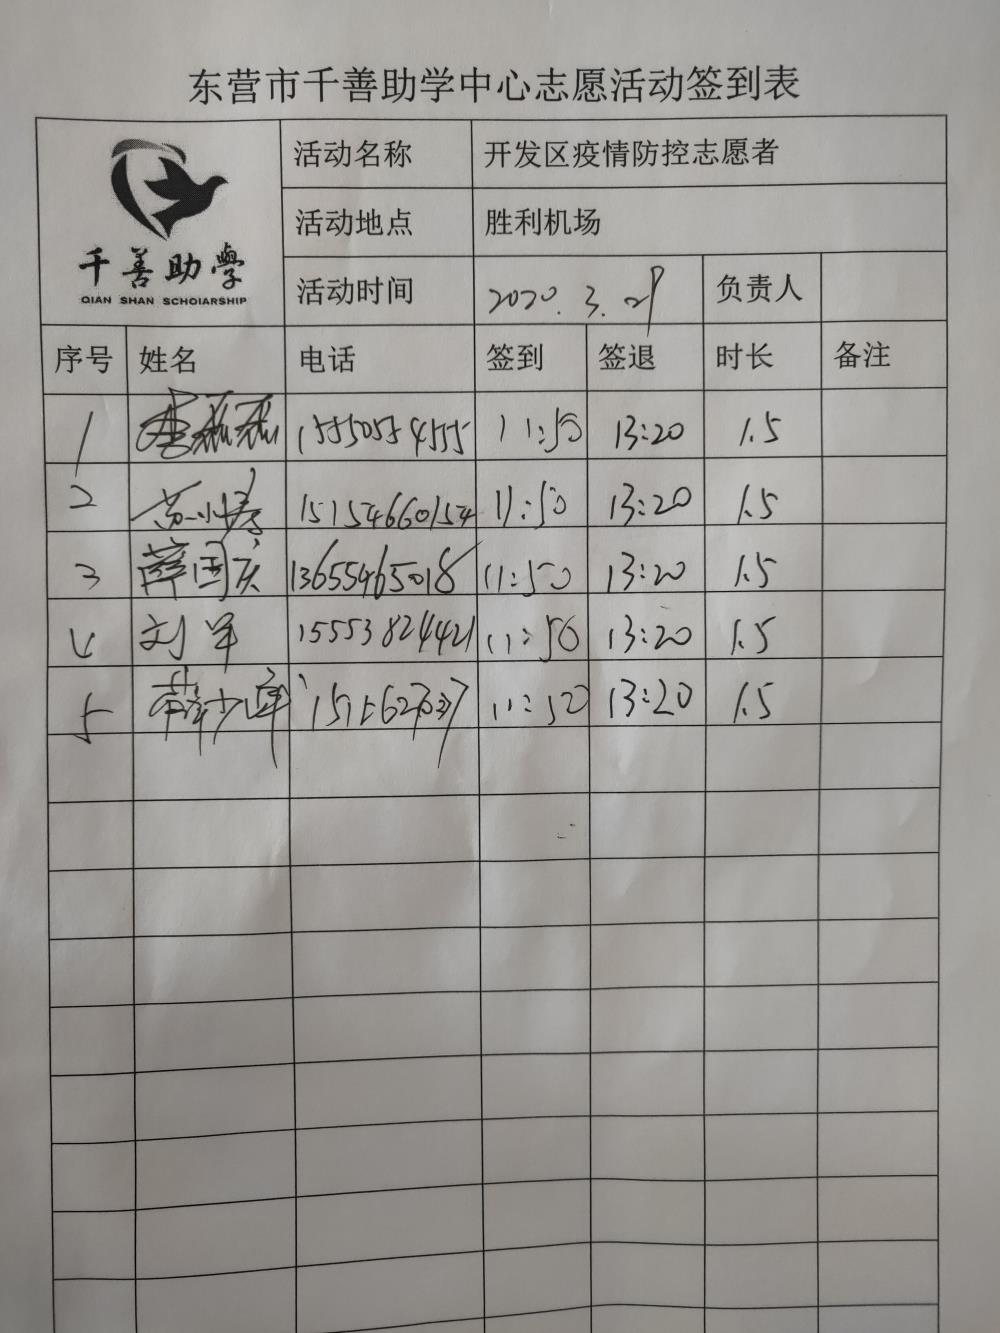 东营市千善助学中心志愿活动签到表
千善助學
QIAN SHAN SCHOLARSHIP
活动名称 开发区疫情防控志愿者
活动地点 胜利机场
活动时间 2020.3.29 负责人
序号 姓名 电话 签到 签退 时长 备注
1 11:50 13:20 1.5
2 15154660154 11:50 13:20 1.5
3 薛国庆 13655465018 11:50 13:20 1.5
4 刘军 15553824421 11:50 13:20 1.5
5 11:50 13:20 1.5